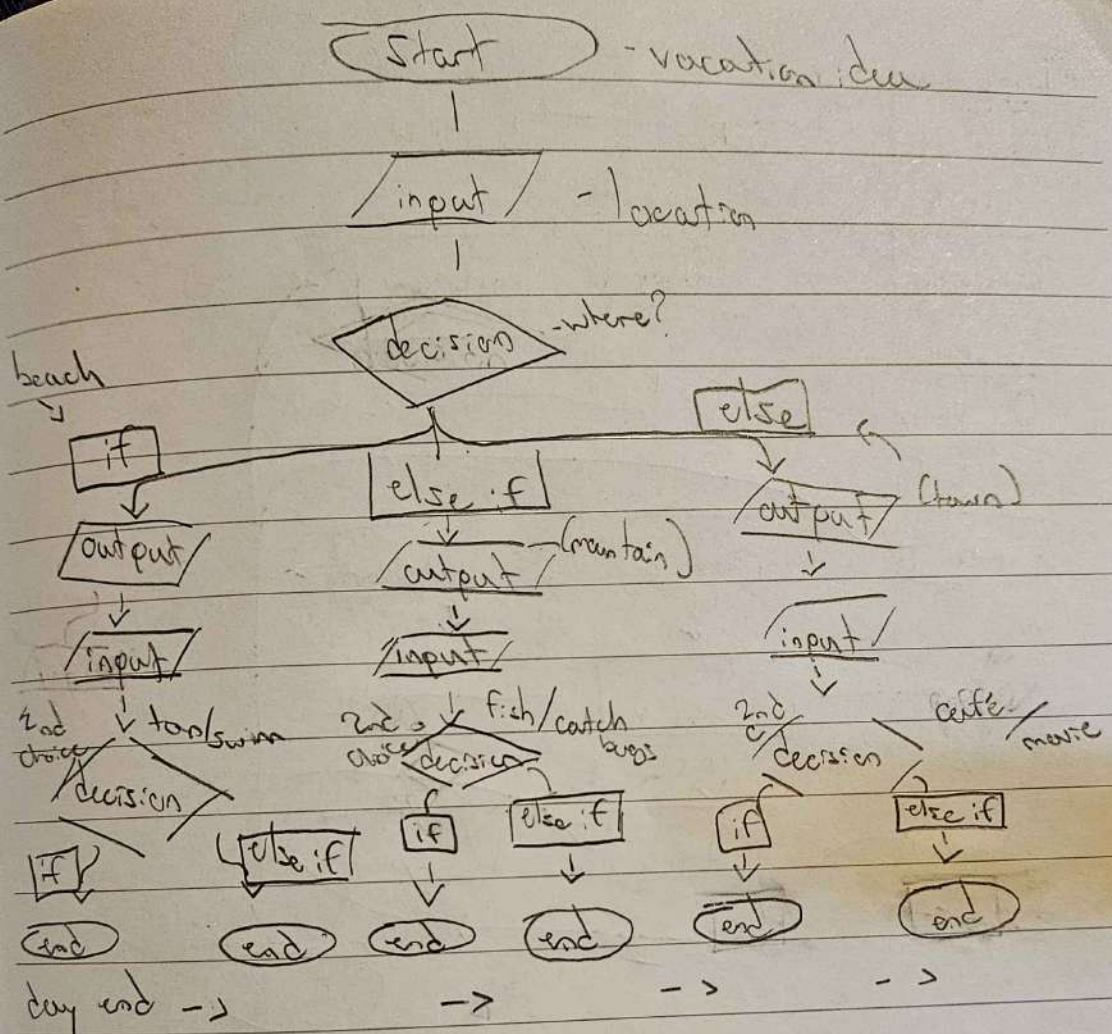 Start - vacation idea
input - location
decision - where?
beach
if else if else
output output (mountain) output (town)
input input input
2nd choice tan/swim 2nd choice fish/catch bugs 2nd c café/movie
decision decision decision
if else if if else if if else if
end end end end end end
day end -> -> -> ->